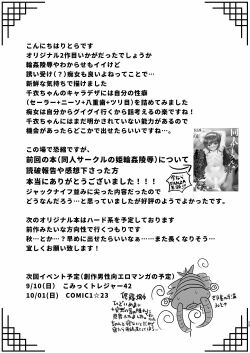 こんにちはりとらです
オリジナル2作目いかがだったでしょうか
輪姦陵辱やわからせもイイけど
誘い受け(?)痴女も良いよねってことで…
新鮮な気持ちで描けました
千衣ちゃんのキャラデザには自分の性癖
(セーラー+ニーソ+八重歯+ツリ目)を詰めてみました
痴女は自分からグイグイ行くから話考えるの楽ですね！
千衣ちゃんにはまだ明かされていない能力があるので
機会があったらどこかで出せたらいいですね～。
この場で恐縮ですが、
前回の本(同人サークルの姫輪姦陵辱)について
読破報告や感想下さった方
本当にありがとうございました！！！
ジャックナイフ並みに尖った内容だったので
どうなんだろう…と思っていましたが好評のようでよかったです。
次のオリジナル本はハード系を予定しております
前作みたいな方向性で行くつもりです
秋…とか…？早めに出せたらいいなぁ……また長くなりそう…
宜しくお願いいたします！
次回イベント予定(創作男性向エロマンガの予定)
9/10(日) こみっくトレジャー42
10/01(日) COMIC1☆23